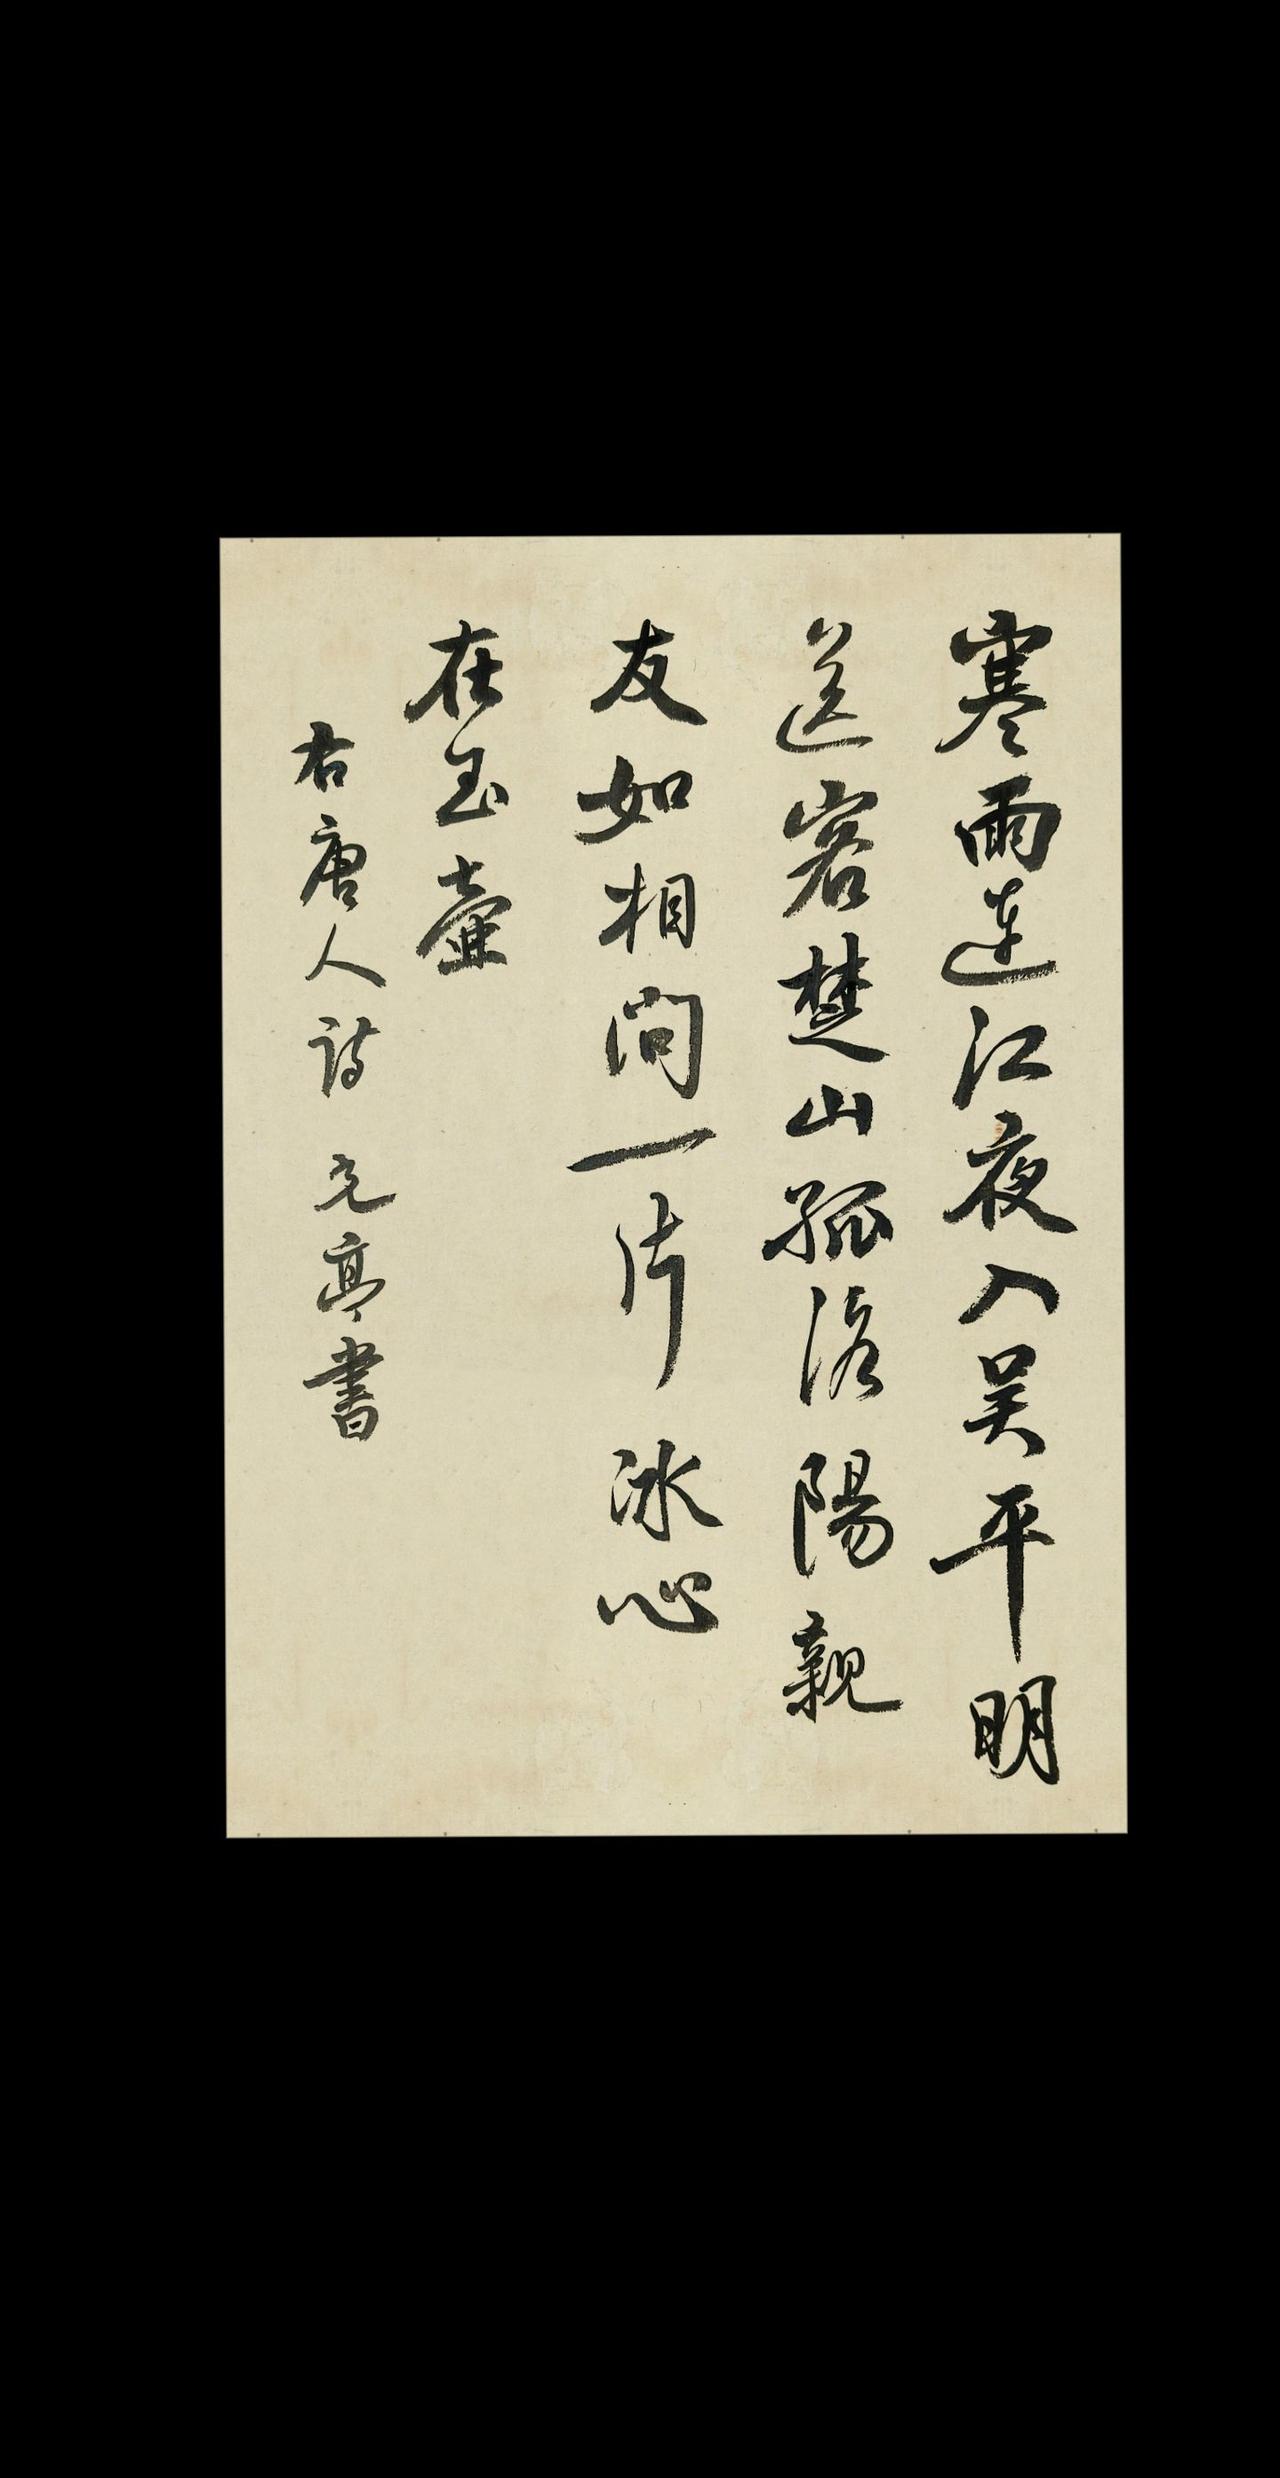 寒雨連江夜入吴平明
送客楚山孤洛陽親
友如相問一片冰心
在玉壺
右唐人詩 元亭書